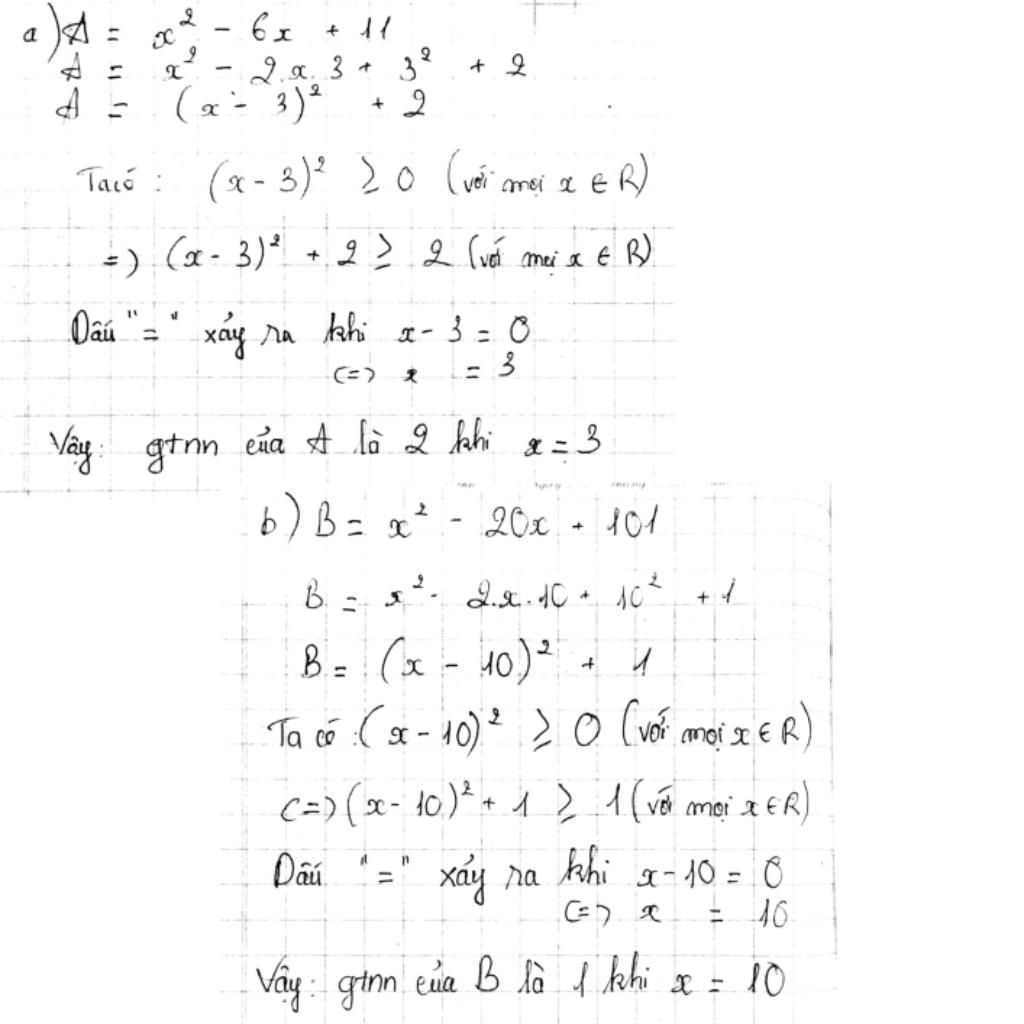 a) A = x² - 6x + 11
A = x² - 2.x.3 + 3² + 2
A = (x - 3)² + 2
Ta có : (x - 3)² ≥ 0 (với mọi x ∈ R)
=> (x - 3)² + 2 ≥ 2 (với mọi x ∈ R)
Dấu "=" xảy ra khi x - 3 = 0
<=> x = 3
Vậy: gtnn của A là 2 khi x = 3
b) B = x² - 20x + 101
B = x² - 2.x.10 + 10² + 1
B = (x - 10)² + 1
Ta có : (x - 10)² ≥ 0 (với mọi x ∈ R)
<=> (x - 10)² + 1 ≥ 1 (với mọi x ∈ R)
Dấu "=" xảy ra khi x - 10 = 0
<=> x = 10
Vậy: gtnn của B là 1 khi x = 10